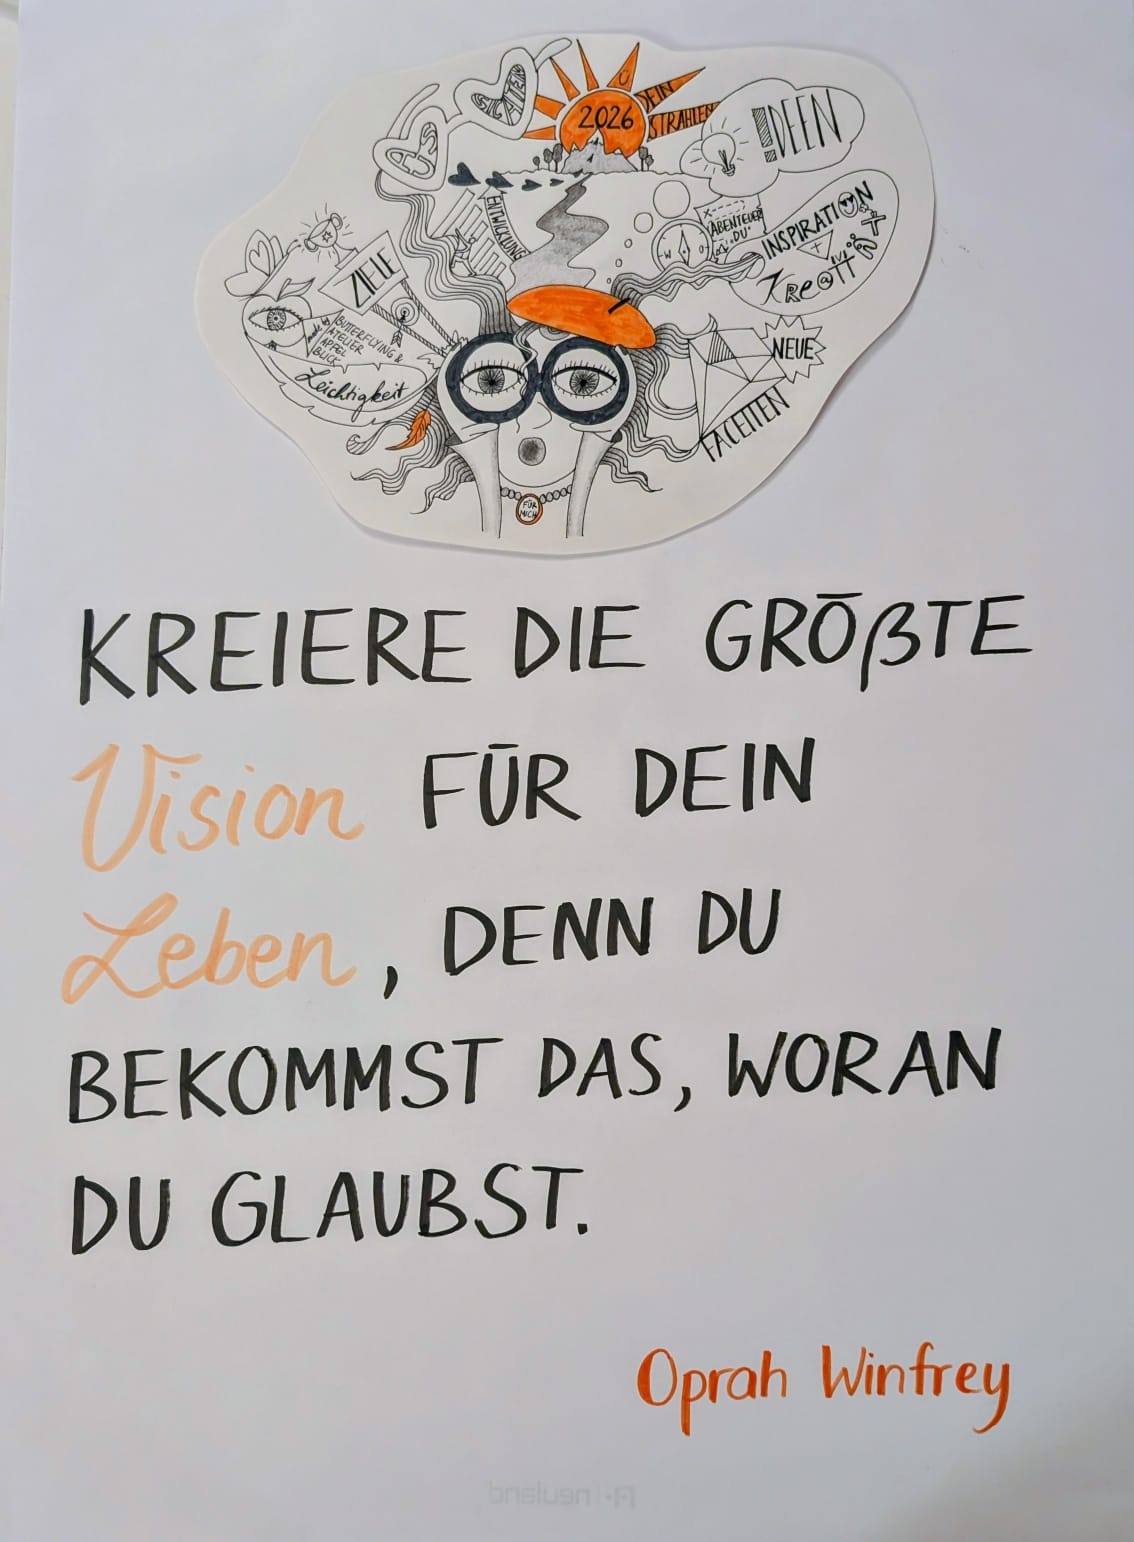 AUS
SICHTEN
2026
Ü
DEIN
STRAHLEN
IDEEN
ENTWICKLUNG
ABENTEUER
"DU"
W O
INSPIRATION
KRe@TIVITÄT
ZIELE
made by
BUTTERFLYING &
ATELIER
APFEL
BLICK
Leichtigkeit
NEUE
FACETTEN
FÜR
MICH
KREIERE DIE GRÖßTE
Vision FÜR DEIN
Leben, DENN DU
BEKOMMST DAS, WORAN
DU GLAUBST.
Oprah Winfrey
neuland